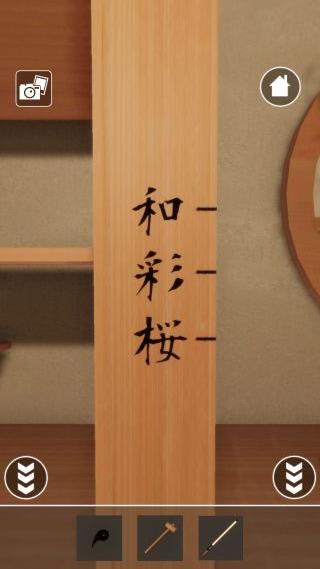 和
彩
桜